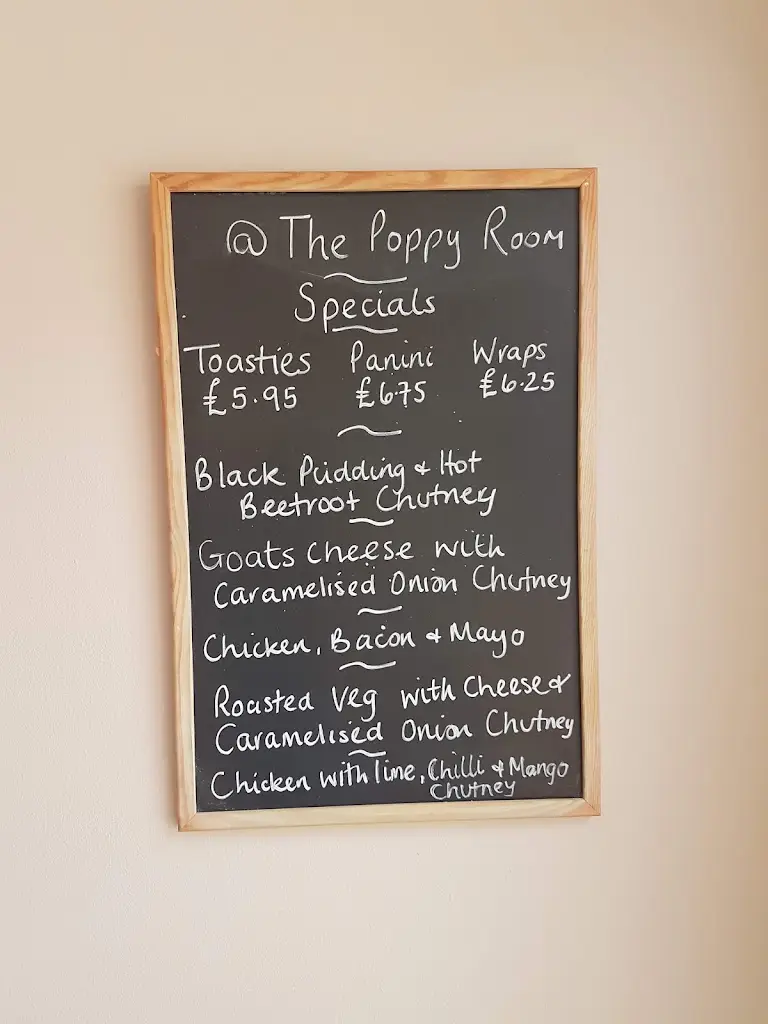 @ The Poppy Room
Specials
Toasties Panini Wraps
£5.95 £6.75 £6.25
Black Pudding & Hot
Beetroot Chutney
Goats cheese with
Caramelised Onion Chutney
Chicken, Bacon & Mayo
Roasted Veg with Cheese &
Caramelised Onion Chutney
Chicken with lime, Chilli & Mango
Chutney